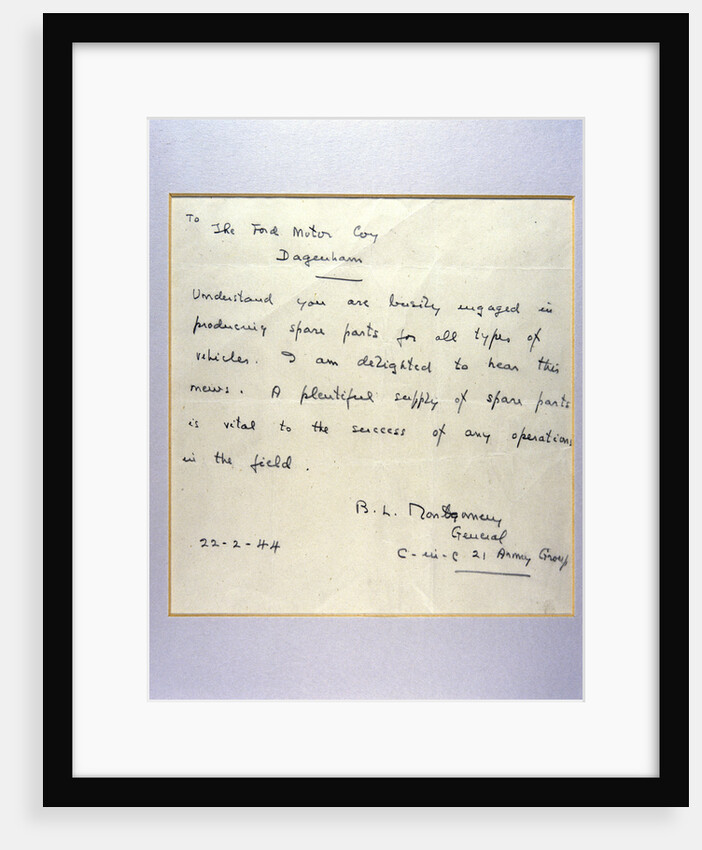 To
The Ford Motor Coy
Dagenham
Understand you are busily engaged in
producing spare parts for all types of
vehicles. I am delighted to hear this
news. A plentiful supply of spare parts
is vital to the success of any operations
in the field.
B. L. Montgomery
General
22-2-44
C-in-C 21 Army Group